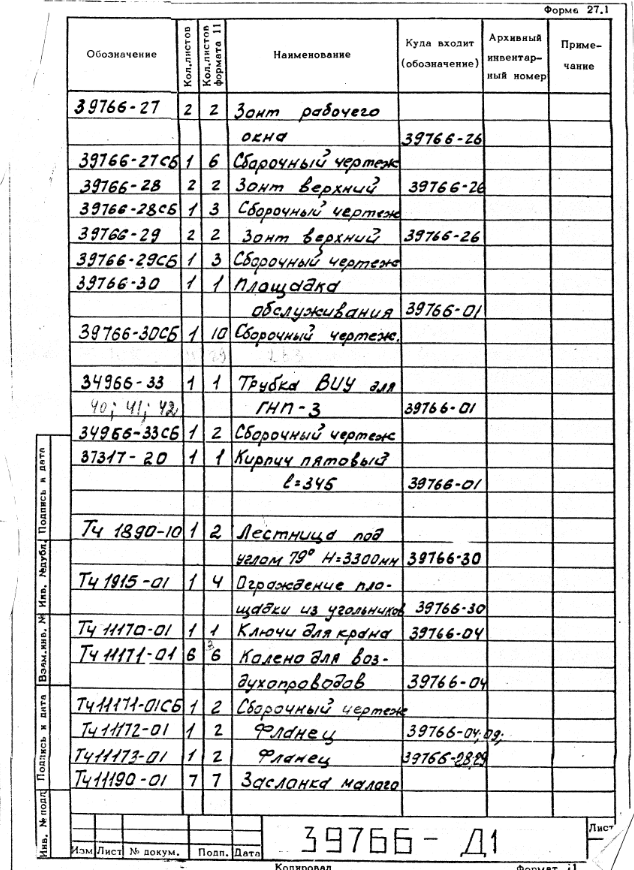 Форма 27.1
Обозначение Кол.листов Кол.листов формата 11 Наименование Куда входит (обозначение) Архивный инвентар- ный номер Приме- чание
39766-27 2 2 Зонт рабочего
окна 39766-26
39766-27СБ 1 6 Сборочный чертеж
39766-28 2 2 Зонт верхний 39766-26
39766-28СБ 1 3 Сборочный чертеж
39766-29 2 2 Зонт верхний 39766-26
39766-29СБ 1 3 Сборочный чертеж
39766-30 1 1 Площадка
обслуживания 39766-01
39766-30СБ 1 10 Сборочный чертеж.
34966-33 1 1 Трубка ВИУ для
40; 41; 42 ГНП-3 39766-01
34966-33СБ 1 2 Сборочный чертеж
37317-20 1 1 Кирпич пятовый
l=345 39766-01
Тч 1890-10 1 2 Лестница под
углом 79° H=3300мм 39766-30
Тч 1915-01 1 4 Ограждение пло-
щадки из угольников 39766-30
Тч 11170-01 1 1 Ключи для крана 39766-04
Тч 11171-01 6 6 Колено для воз-
духопроводов 39766-04
Тч11171-01СБ 1 2 Сборочный чертеж
Тч11172-01 1 2 Фланец 39766-04;09;
Тч11173-01 1 2 Фланец 39766-28;29
Тч11190-01 7 7 Заслонка малого
Подпись и дата
Инв. №дубл.
Взам.инв. №
Подпись и дата
Инв. № подл
Изм Лист № докум. Подп. Дата
39766- Д1
Лист
Копировал Формат 11